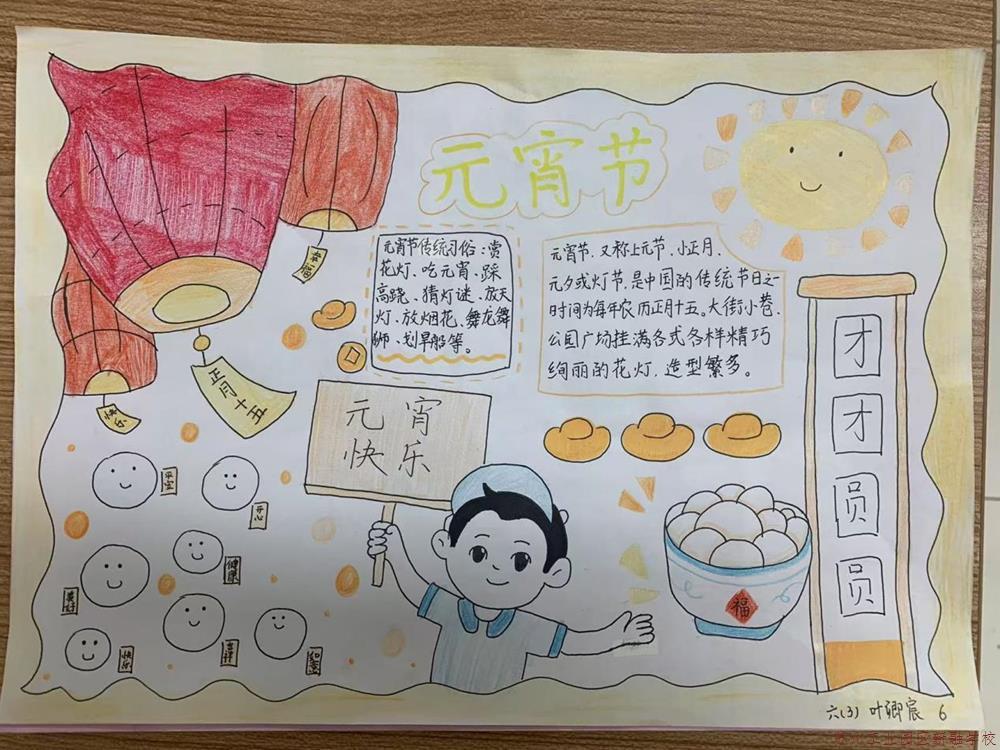 元宵节
幸福
元宵节传统习俗:赏
花灯、吃元宵、踩
高跷、猜灯谜、放天
灯、放烟花、舞龙舞
狮、划旱船等。
元宵节、又称上元节、小正月、
元夕或灯节,是中国的传统节日之一
时间为每年农历正月十五。大街小巷、
公园广场挂满各式各样精巧
绚丽的花灯,造型繁多。
正月十五
快乐
元宵
快乐
团
团
圆
圆
平安
开心
健康
美好
吉祥
快乐
和蔼
福
六(3) 叶卿宸 6